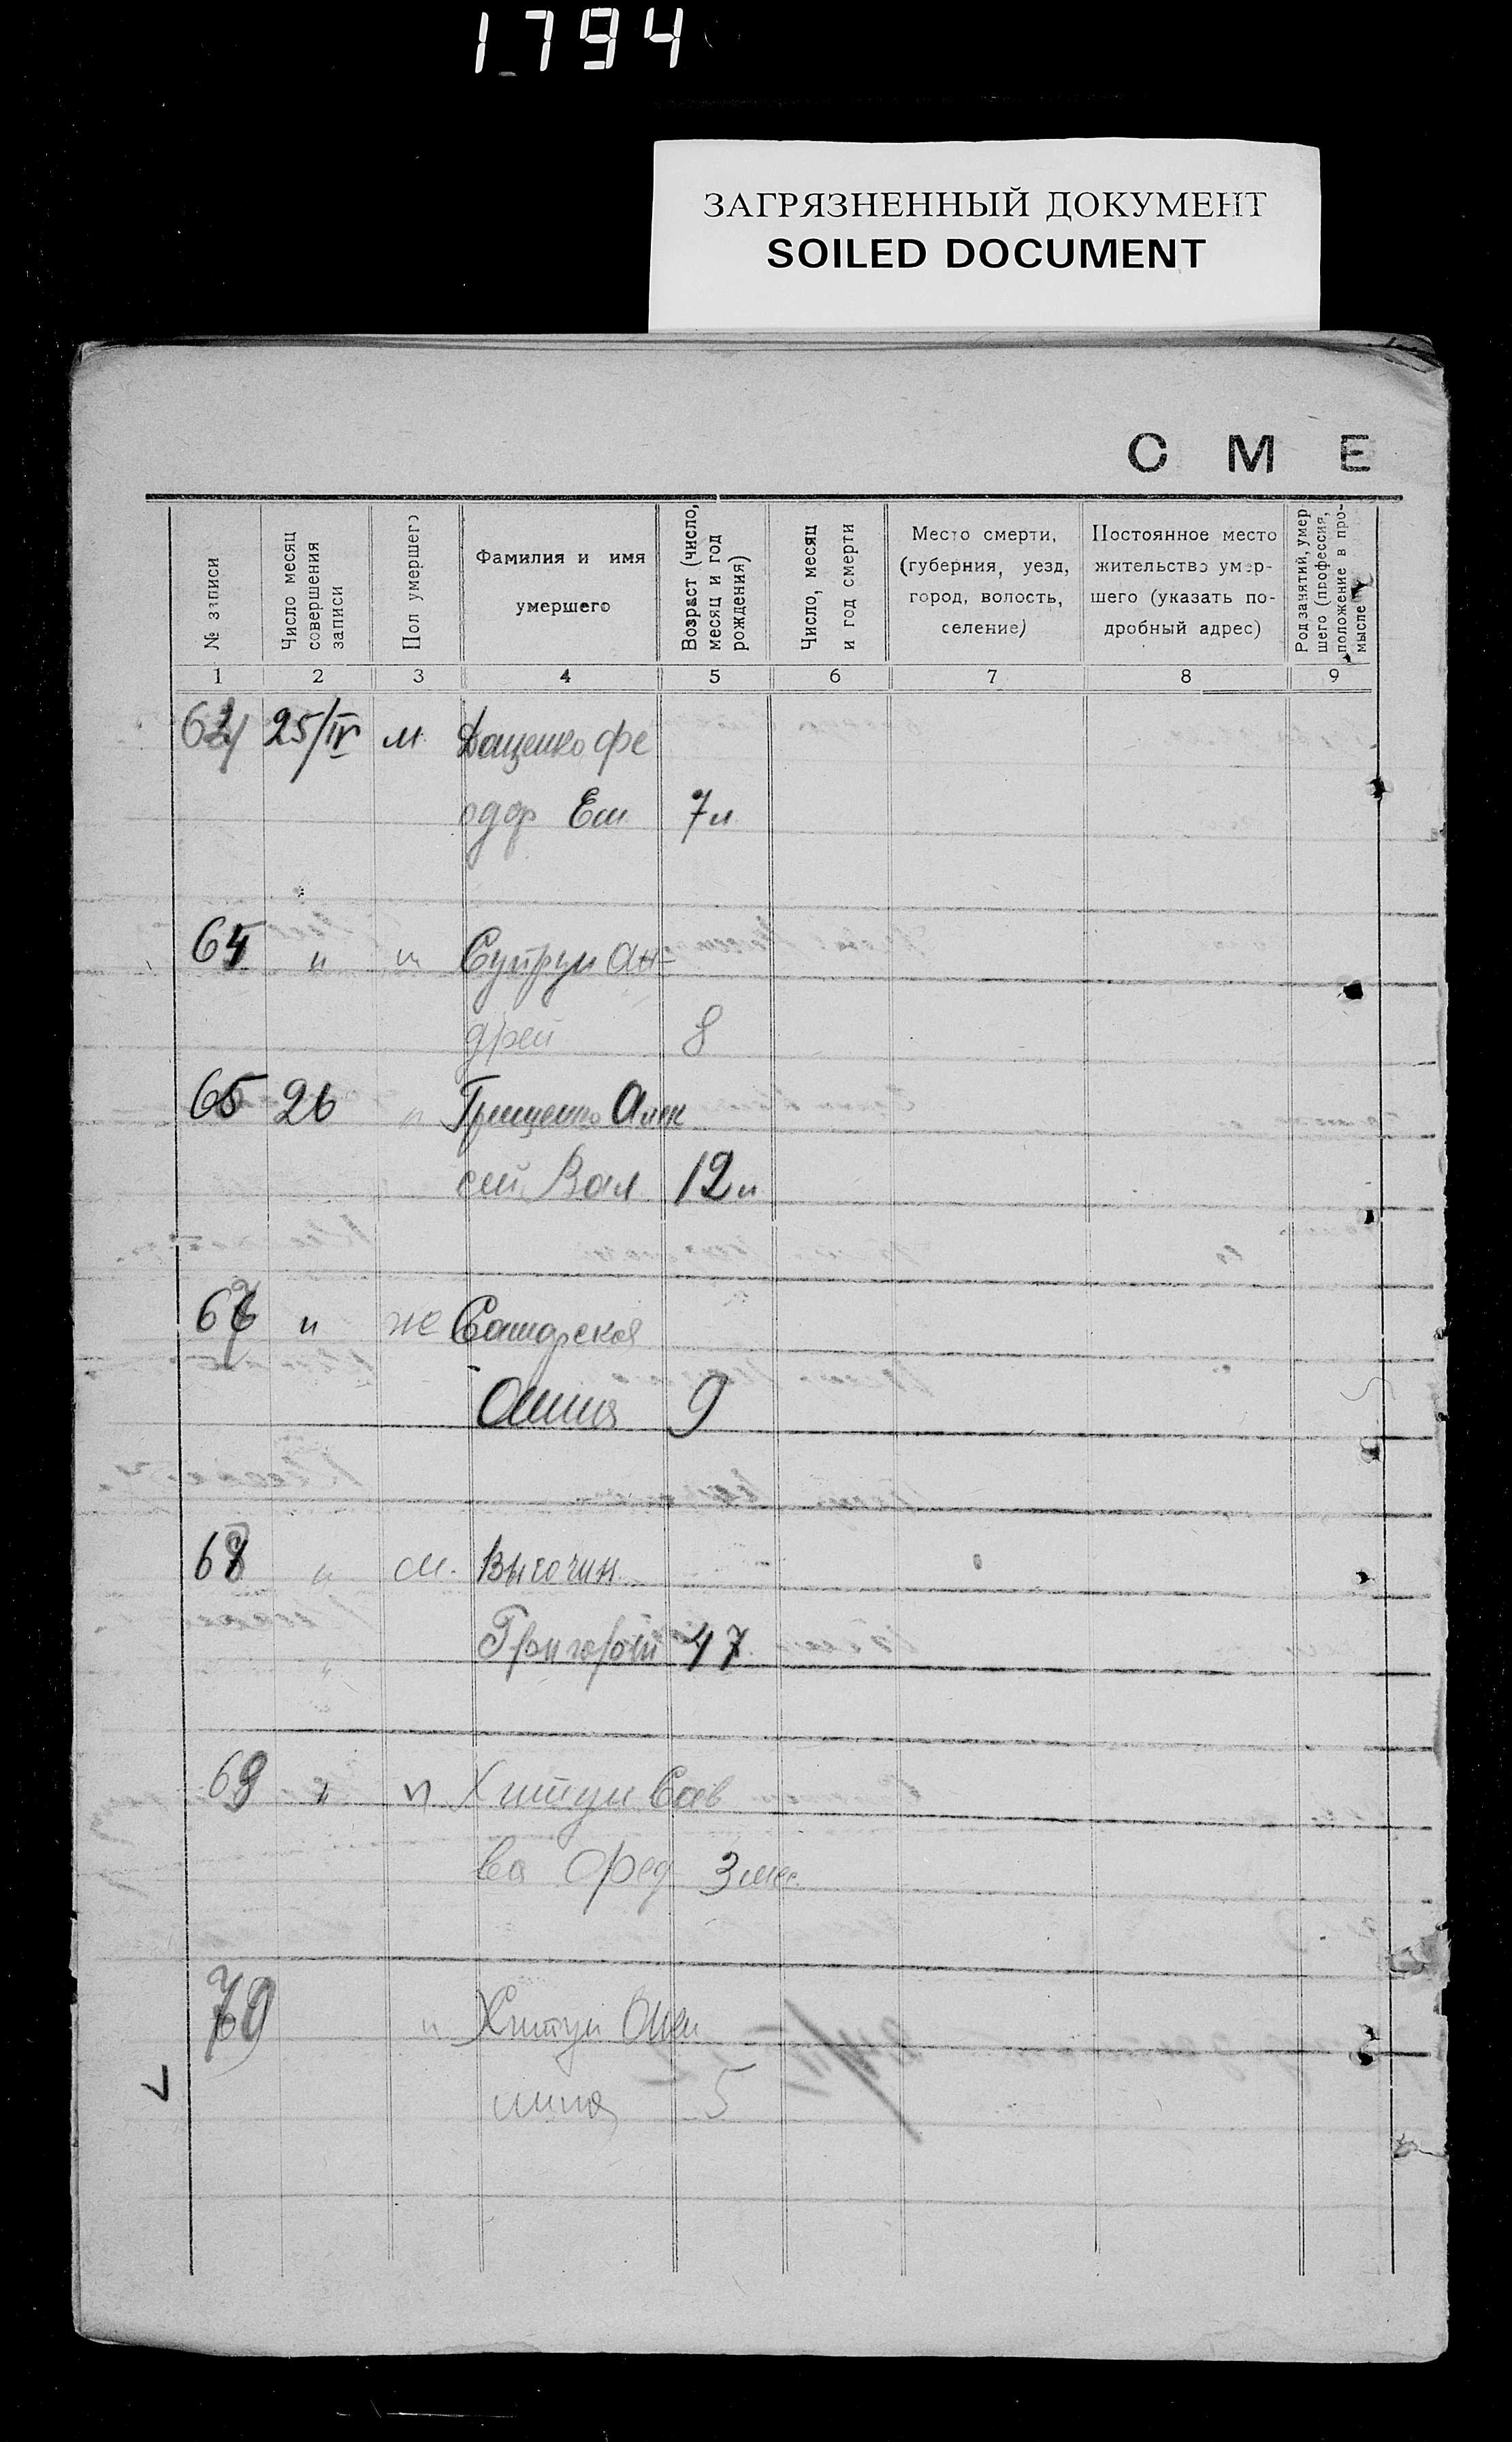 1794
ЗАГРЯЗНЕННЫЙ ДОКУМЕНТ
SOILED DOCUMENT
С М Е
№ записи
Число месяц совершения записи
Пол умершего
Фамилия и имя умершего
Возраст (число, месяц и год рождения)
Число, месяц и год смерти
Место смерти, (губерния, уезд, город, волость, селение)
Постоянное место жительство умершего (указать подробный адрес)
Род занятий, умершего (профессия, положение в промысле
1 2 3 4 5 6 7 8 9
25/IV м Даценко Фе
одор Ем 7 л
64 " " Супрун Ан-
дрей 8
65 26 " Грищенко Алек
сей Вал 12 л
67 " ж Самарская
Анна 9
68 " м. Высочин
Григорий 47
69 " " Хитун Сав
ва Фед 3 мес.
70 " Хитун
5